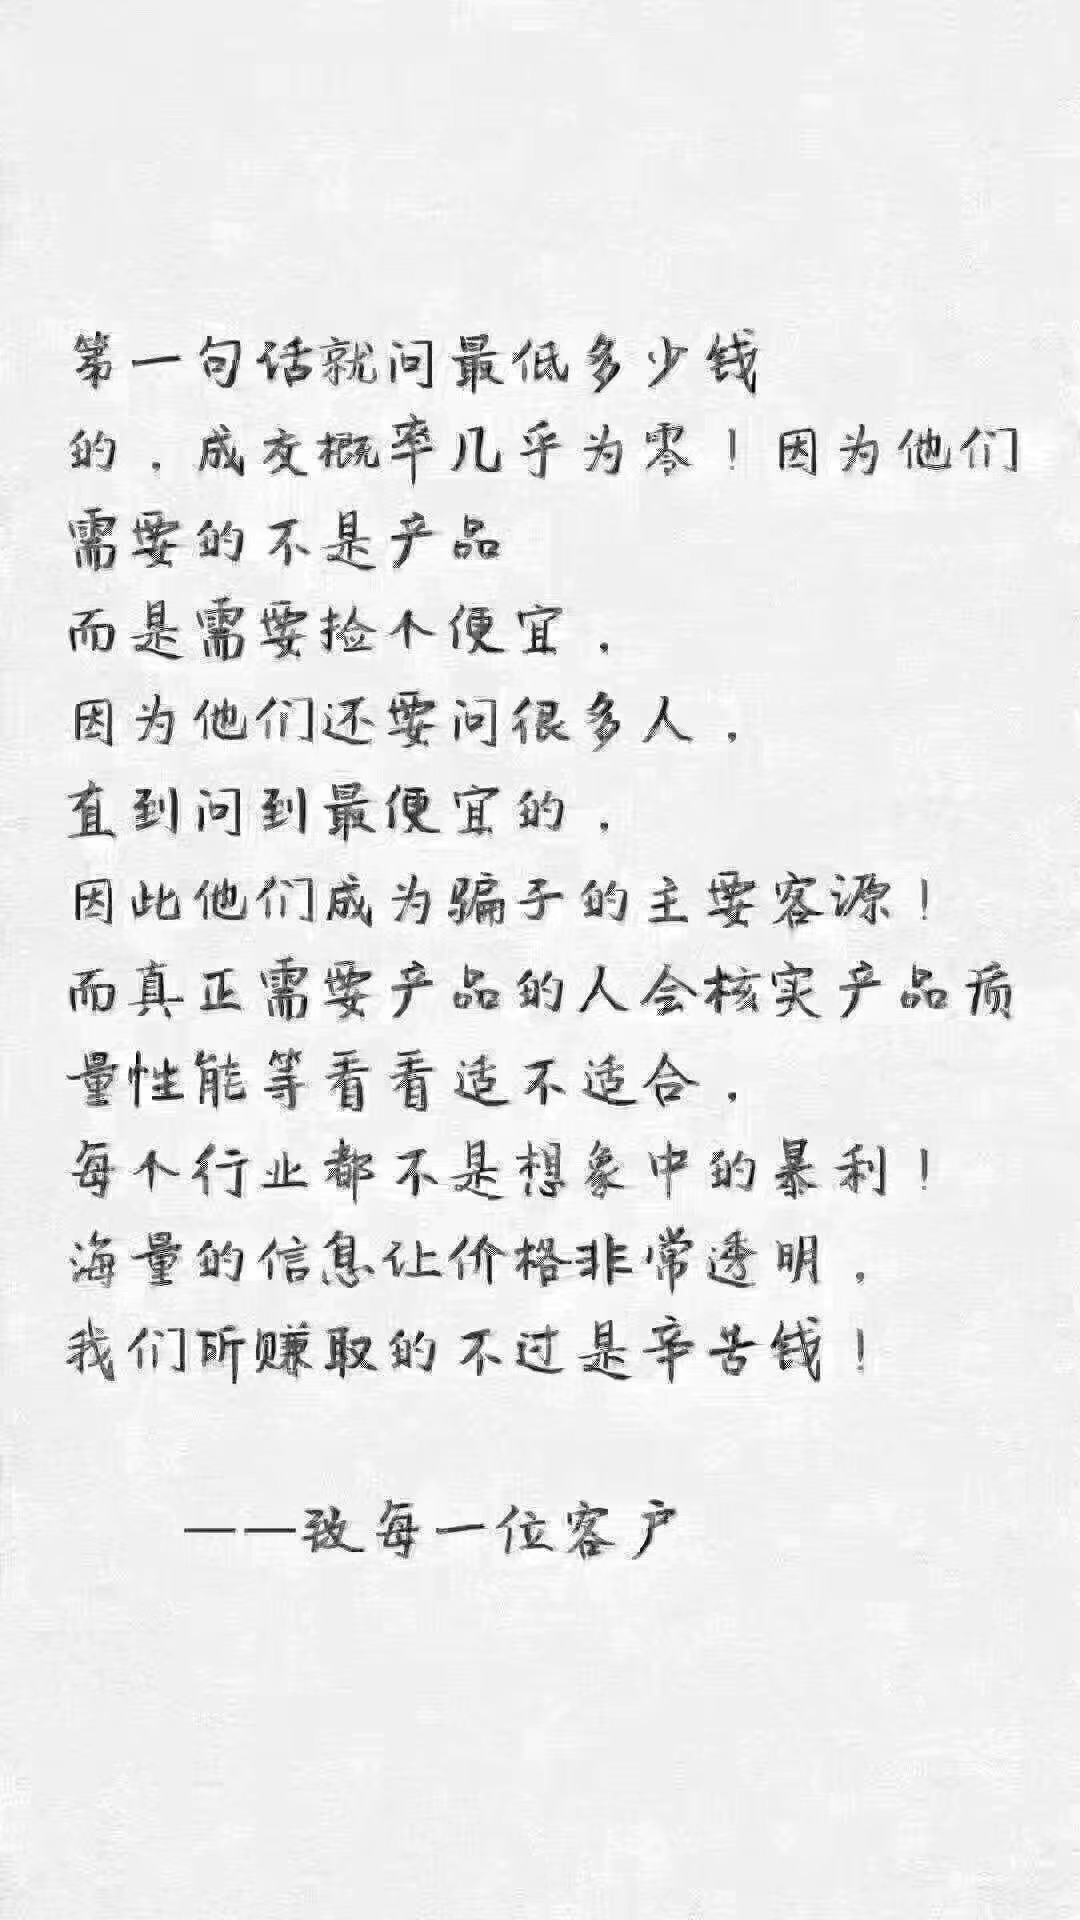 第一句话就问最低多少钱
的，成交概率几乎为零！因为他们
需要的不是产品
而是需要捡个便宜，
因为他们还要问很多人，
直到问到最便宜的，
因此他们成为骗子的主要客源！
而真正需要产品的人会核实产品质
量性能等看看适不适合，
每个行业都不是想象中的暴利！
海量的信息让价格非常透明，
我们所赚取的不过是辛苦钱！
——致每一位客户